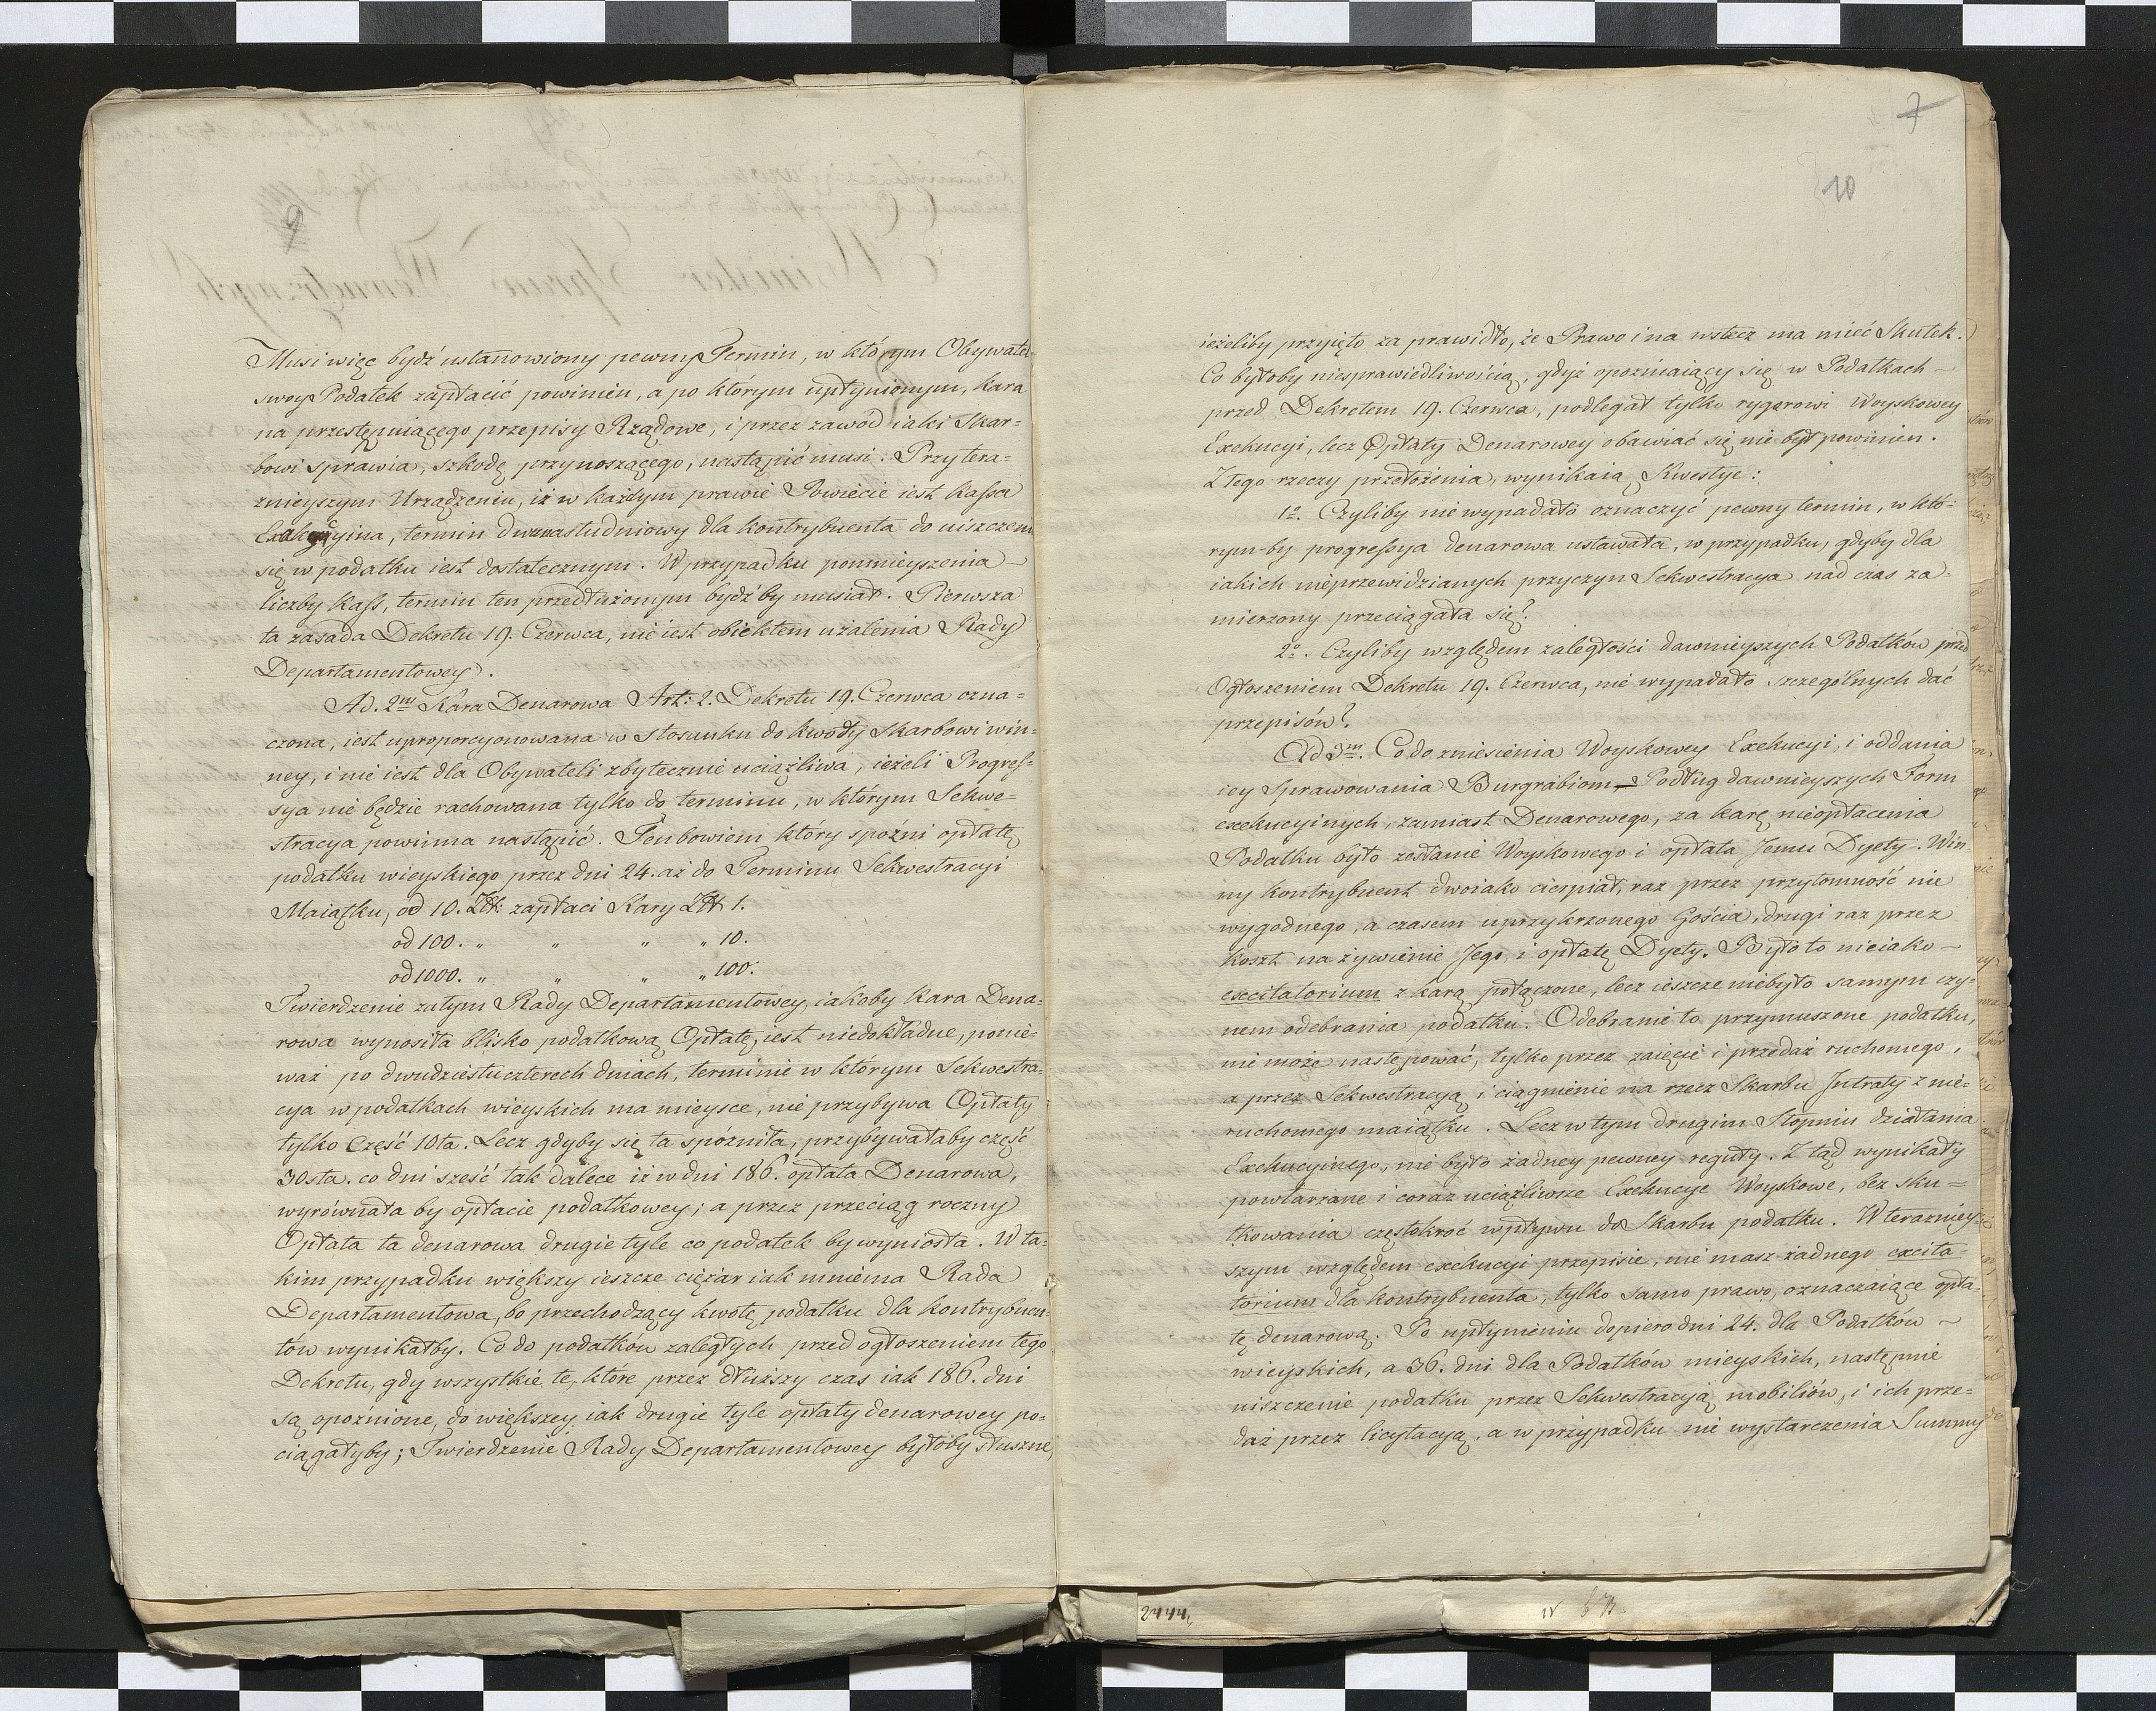 9
Musi więc bydź ustanowiony pewny Termin, w którym Obywatel
swoy Podatek zapłacić powinien, a po którym upłynionym, kara
na przestępuiącego przepisy Rządowe, i przez zawód iaki Skar=
bowi sprawia, szkodę przynoszącego, nastąpić musi. Przy tera=
znieyszym Urządzeniu, iż w każdym prawie Powiecie iest Kassa
termin dwunastudniowy dla kontrybuenta do uiszczenia
się w podatku iest dostatecznym. W przypadku pomnieyszenia –
liczby Kass, termin ten przedłużonym bydź by musiał. Pierwsza
ta zasada Dekretu 19. Czerwca, nie iest obiektem użalenia Rady
Departamentowey.
Ad. 2m Kara Denarowa Art: 2. Dekretu 19. Czerwca ozna=
czona, iest uproporcyonowana w stosunku do kwoty Skarbowi win=
ney, i nie iest dla Obywateli zbytecznie uciążliwa, ieżeli Progres=
sya nie będzie rachowana tylko do terminu, w którym Sekwe=
stracya powinna nastąpić. Ten bowiem który spoźni opłatę
podatku wieyskiego przez dni 24. aż do Terminu Sekwestracyi
Maiątku, od 10. Złt: zapłaci Kary Złt 1.
od 100. „ „ „ „ 10.
od 1000. „ „ „ „ 100.
Twierdzenie zatym Rady Departamentowey, iakoby kara Dena=
rowa wynosiła blisko podatkową Opłatę, iest niedokładne, ponie=
waż po dwudziestuczterech dniach, terminie w którym Sekwestra=
cya w podatkach wieyskich ma mieysce, nie przybywa Opłaty
tylko Część 10ta. Lecz gdyby się ta spóźniła, przybywałaby część
30sta. co dni sześć tak dalece iż w dni 186. opłata Denarowa,
wyrównała by opłacie podatkowey; a przez przeciąg roczny
Opłata ta denarowa drugie tyle co podatek by wyniosła. W ta=
kim przypadku większy ieszcze ciężar iak mniema Rada
Departamentowa, bo przechodzący kwotę podatku dla kontrybuen=
tów wynikałby. Co do podatków zaległych przed ogłoszeniem tego
Dekretu, gdy wszystkie te, które przez dłuższy czas iak 186. dni
są opoźnione, do większey iak drugie tyle opłaty denarowey po=
ciągałyby; Twierdzenie Rady Departamentowey byłoby słuszne,
7
10
ieżeliby przyięto za prawidło, że Prawo i na wstecz ma mieć Skutek.
Co byłoby niesprawiedliwością, gdyż opoźniaiący się w Podatkach –
przed Dekretem 19. Czerwca, podlegał tylko rygorowi Woyskowey
Exekucyi, lecz Opłaty Denarowey obawiać się nie był powinien.
Z tego rzeczy przełożenia, wynikaią Kwestye:
1o. Czyliby nie wypadało oznaczyć pewny termin, w któ=
rym by progressya denarowa ustawała, w przypadku, gdyby dla
iakich nieprzewidzianych przyczyn Sekwestracya nad czas za=
mierzony przeciągała się?
2o. Czyliby względem zaległości dawnieyszych Podatków przed
Ogłoszeniem Dekretu 19. Czerwca, nie wypadało szczególnych dać
przepisów?
Ad 3m. Co do zniesienia Woyskowey Exekucyi, i oddania
iey Sprawowania Burgrabiom – Podług dawnieyszych Form
exekucyinych, zamiast Denarowego, za karę nieopłacenia
Podatku było zesłanie Woyskowego i opłata Jemu Dyety. Win
ny kontrybuent dwoiako cierpiał, raz przez przytomność nie
wygodnego, a czasem uprzykrzonego Gościa, drugi raz przez
koszt na żywienie Jego, i opłatę Dyety. Było to nieiako –
excitatorium z karą połączone, lecz ieszcze niebyło samym czy=
nem odebrania podatku. Odebranie to przymuszone podatku,
nie może następować, tylko przez zaięcie i przedaż ruchomego,
a przez Sekwestracyą i ciągnienie na rzecz Skarbu Intraty z nie=
ruchomego maiątku. Lecz w tym drugim Stopniu działania
Exekucyinego, nie było żadney pewney reguły. Z tąd wynikały
powtarzane i coraz uciążliwsze Exekucye Woyskowe, bez sku=
tkowania częstokroć wpływu do Skarbu podatku. W terazniey=
szym względem exekucyi przepisie, nie masz żadnego excita=
torium dla kontrybuenta, tylko samo prawo, oznaczaiące opła=
tę denarową. Po upłynieniu dopiero dni 24. dla Podatków –
wieyskich, a 36. dni dla Podatków mieyskich, następnie
uiszczenie podatku przez Sekwestracyią mobiliów, i ich prze=
daż przez licytacyą, a w przypadku nie wystarczenia Summy
2444